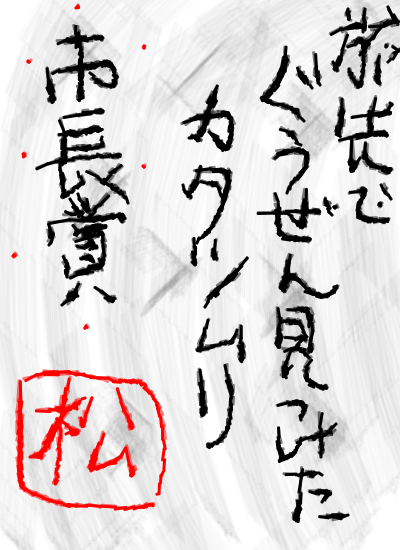 旅先で
ぐうぜん見つけた
カタツムリ
市長賞
松